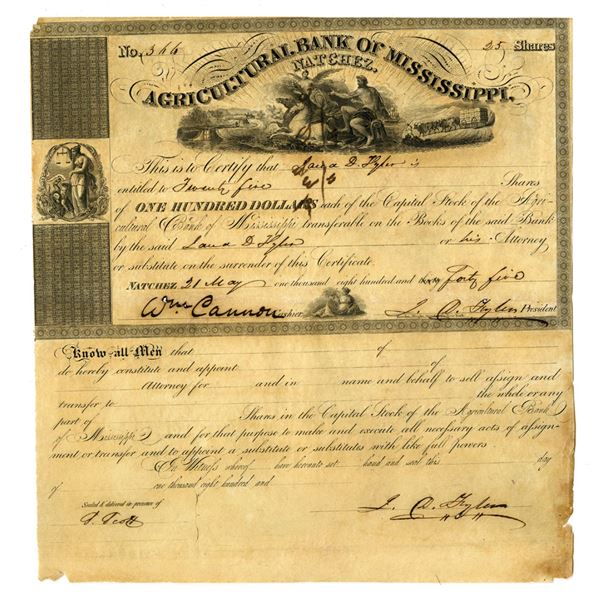 No. 366 25 Shares
AGRICULTURAL BANK OF MISSISSIPPI.
NATCHEZ.
This is to Certify that D. is
entitled to Twenty five Shares
of ONE HUNDRED DOLLARS each of the Capital Stock of the Agri-
cultural Bank of Mississippi transferable on the Books of the said Bank
by the said D. or his Attorney
or substitute on the surrender of this Certificate.
NATCHEZ 21 May one thousand eight hundred and thirty Forty five
Wm Cannon Cashier President
Know all Men that of
do hereby constitute and appoint of
Attorney for and in name and behalf to sell assign and
transfer to the whole or any
part of Shares in the Capital Stock of the Agricultural Bank
of Mississippi and for that purpose to make and execute all necessary acts of assign-
ment or transfer and to appoint a substitute or substitutes with like full powers
In Witness whereof have hereunto set hand and seal this day
of one thousand eight hundred and
Sealed & delivered in presence of
Scott